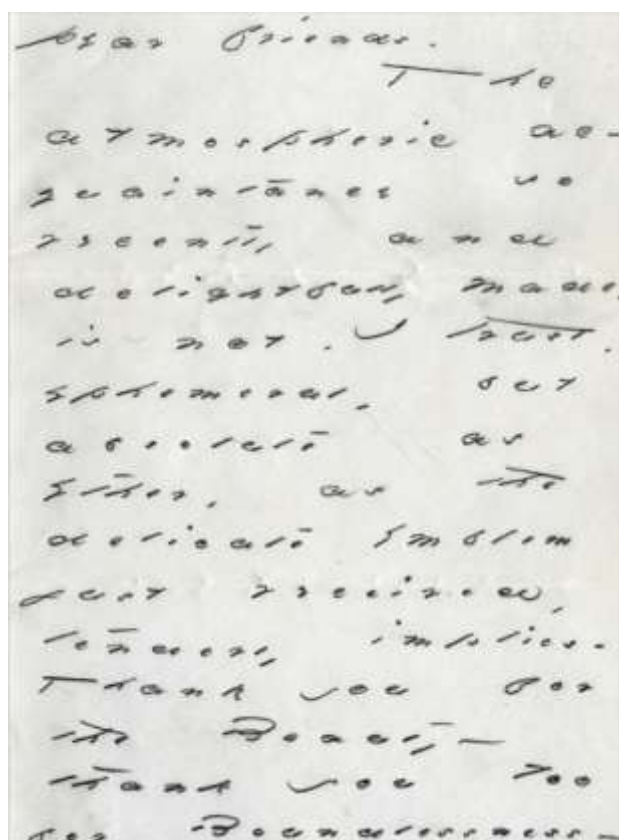 Dear friends.
The
atmospheric ac-
quaintance so
recently and
delightfully made,
is not, I trust,
ephemeral, but
absolute as
Ether, as the
delicate Emblem
just received,
tenderly implies.
Thank you for
the Beauty -
thank you too
for Boundlessness -